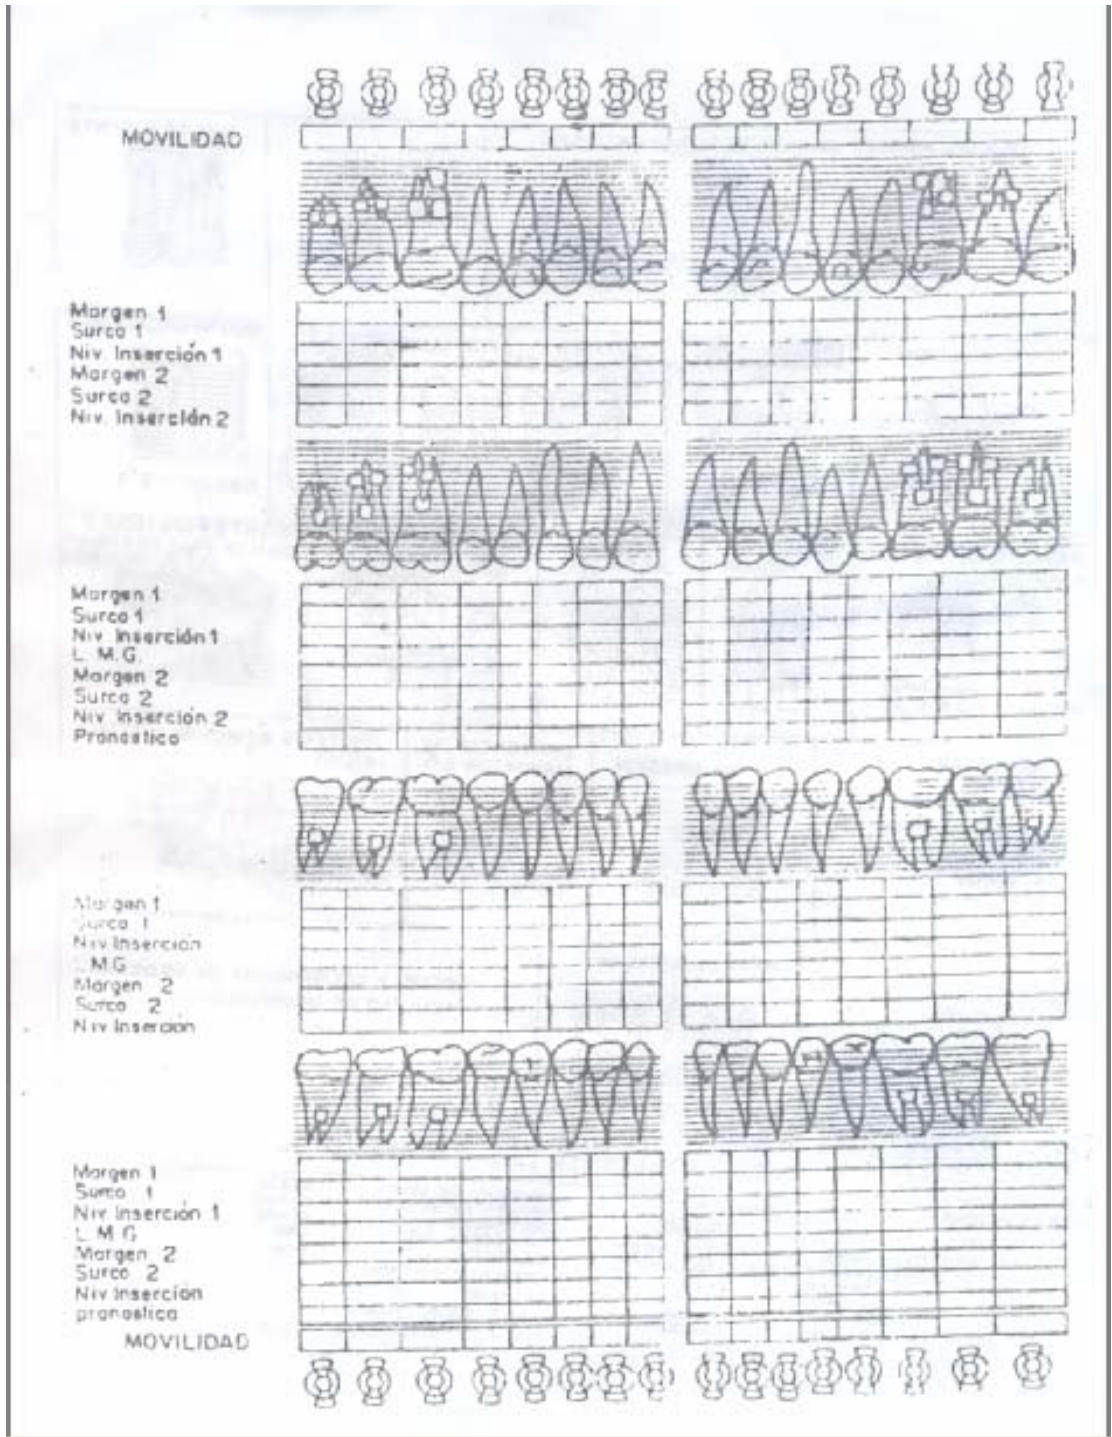 MOVILIDAD
Margen 1
Surco 1
Niv. Inserción 1
Margen 2
Surco 2
Niv. Inserción 2
Margen 1
Surco 1
Niv Inserción 1
L. M.G.
Margen 2
Surco 2
Niv Inserción 2
Pronostico
Margen 1
Surco 1
Niv Inserción
L M.G
Margen 2
Surco 2
Niv Inserción
Margen 1
Surco 1
Niv Inserción 1
L M G
Margen 2
Surco 2
Niv Inserción
pronostico
MOVILIDAD